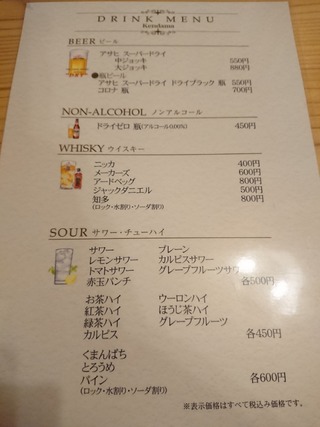 DRINK MENU
BEER ビール
アサヒ スーパードライ
中ジョッキ 550円
大ジョッキ 880円
●瓶ビール
アサヒ スーパードライ ドライブラック 瓶 550円
コロナ 瓶 700円
NON-ALCOHOL ノンアルコール
ドライゼロ 瓶(アルコール0.00%) 450円
WHISKY ウイスキー
ニッカ 400円
メーカーズ 600円
アードベッグ 800円
ジャックダニエル 500円
知多 800円
(ロック・水割り・ソーダ割り)
SOUR サワー・チューハイ
サワー プレーン
レモンサワー カルピスサワー
トマトサワー グレープフルーツサワー
赤玉パンチ 各500円
お茶ハイ ウーロンハイ
紅茶ハイ ほうじ茶ハイ
緑茶ハイ グレープフルーツ
カルピス 各450円
くまんばち
とろうめ
パイン 各600円
(ロック・水割り・ソーダ割り)
※表示価格はすべて税込み価格です。